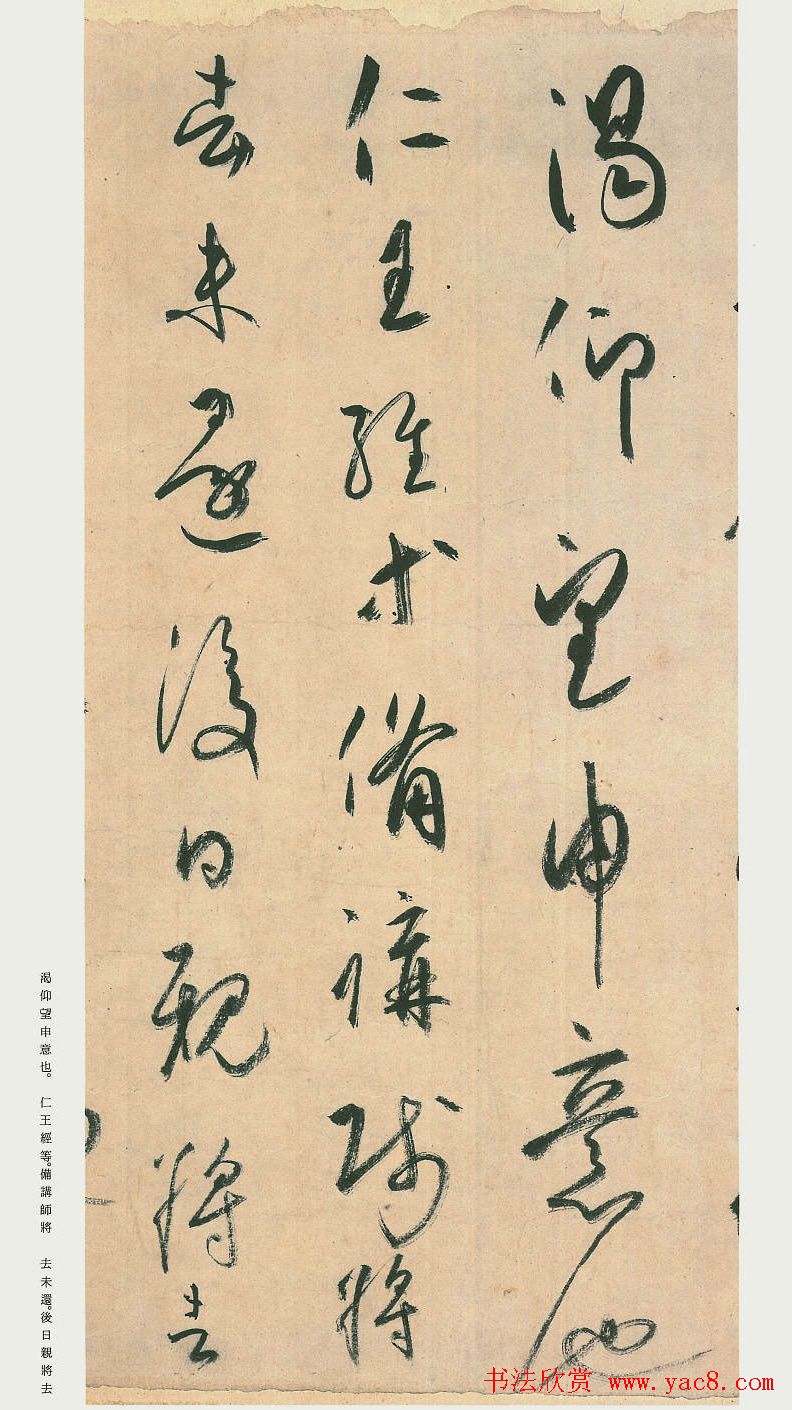 渴仰望申意也
仁王經等備講師將
去未還後日親將去
渴仰望申意也。 仁王經等。備講師將 去未還。後日親將去
书法欣赏 www.yac8.com